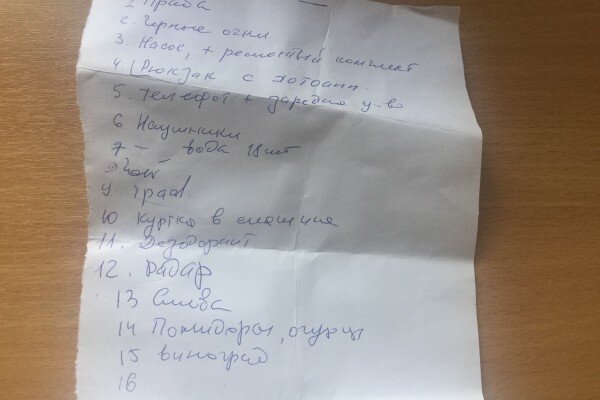 2. Черные огни
3 Насос, + ремонтный комплект
4. Рюкзак с
5. телефон + зарядно у-во
6 Наушники
7 — вода 18 шт
9
10 куртка в
11. Дезодорант
12. Радар
13 Слива
14 Помидоры, огурцы
15 виноград
16